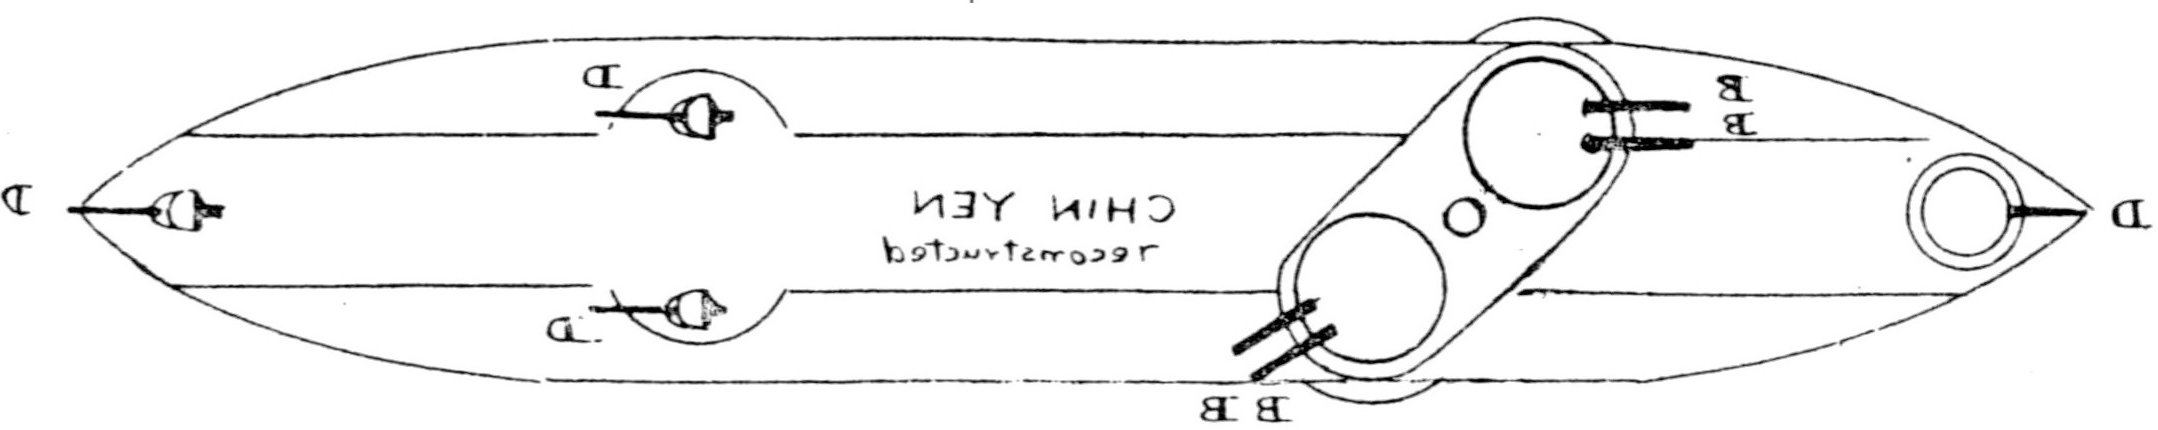 D
B
B
D
CHIN YEN
D
reconstructed
D
B B